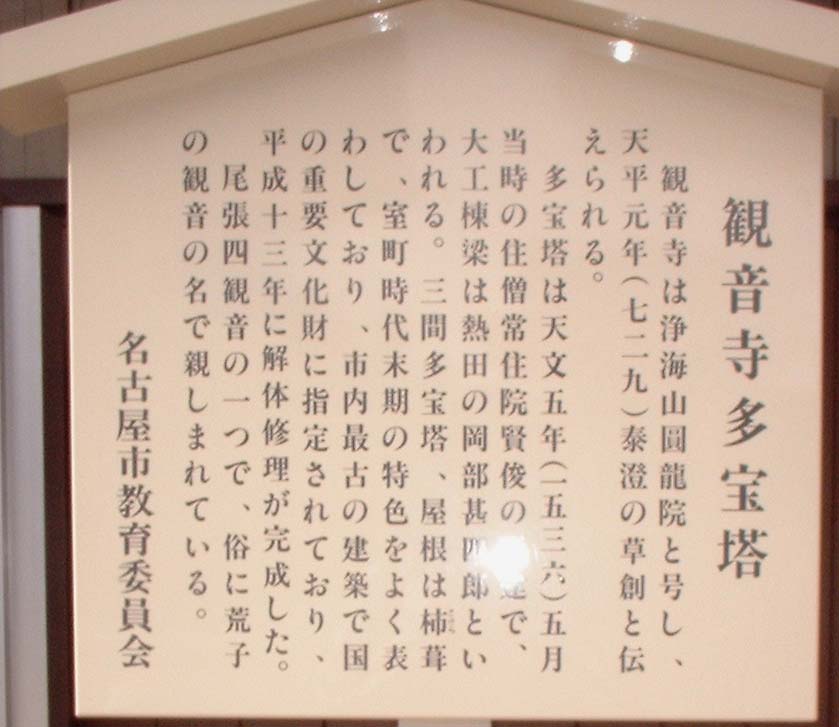 観音寺多宝塔
観音寺は浄海山圓龍院と号し、
天平元年(七二九)泰澄の草創と伝
えられる。
多宝塔は天文五年(一五三六)五月
当時の住僧常住院賢俊の達で、
大工棟梁は熱田の岡部甚四郎とい
われる。三間多宝塔、屋根は柿葺
で、室町時代末期の特色をよく表
わしており、市内最古の建築で国
の重要文化財に指定されており、
平成十三年に解体修理が完成した。
尾張四観音の一つで、俗に荒子
の観音の名で親しまれている。
名古屋市教育委員会